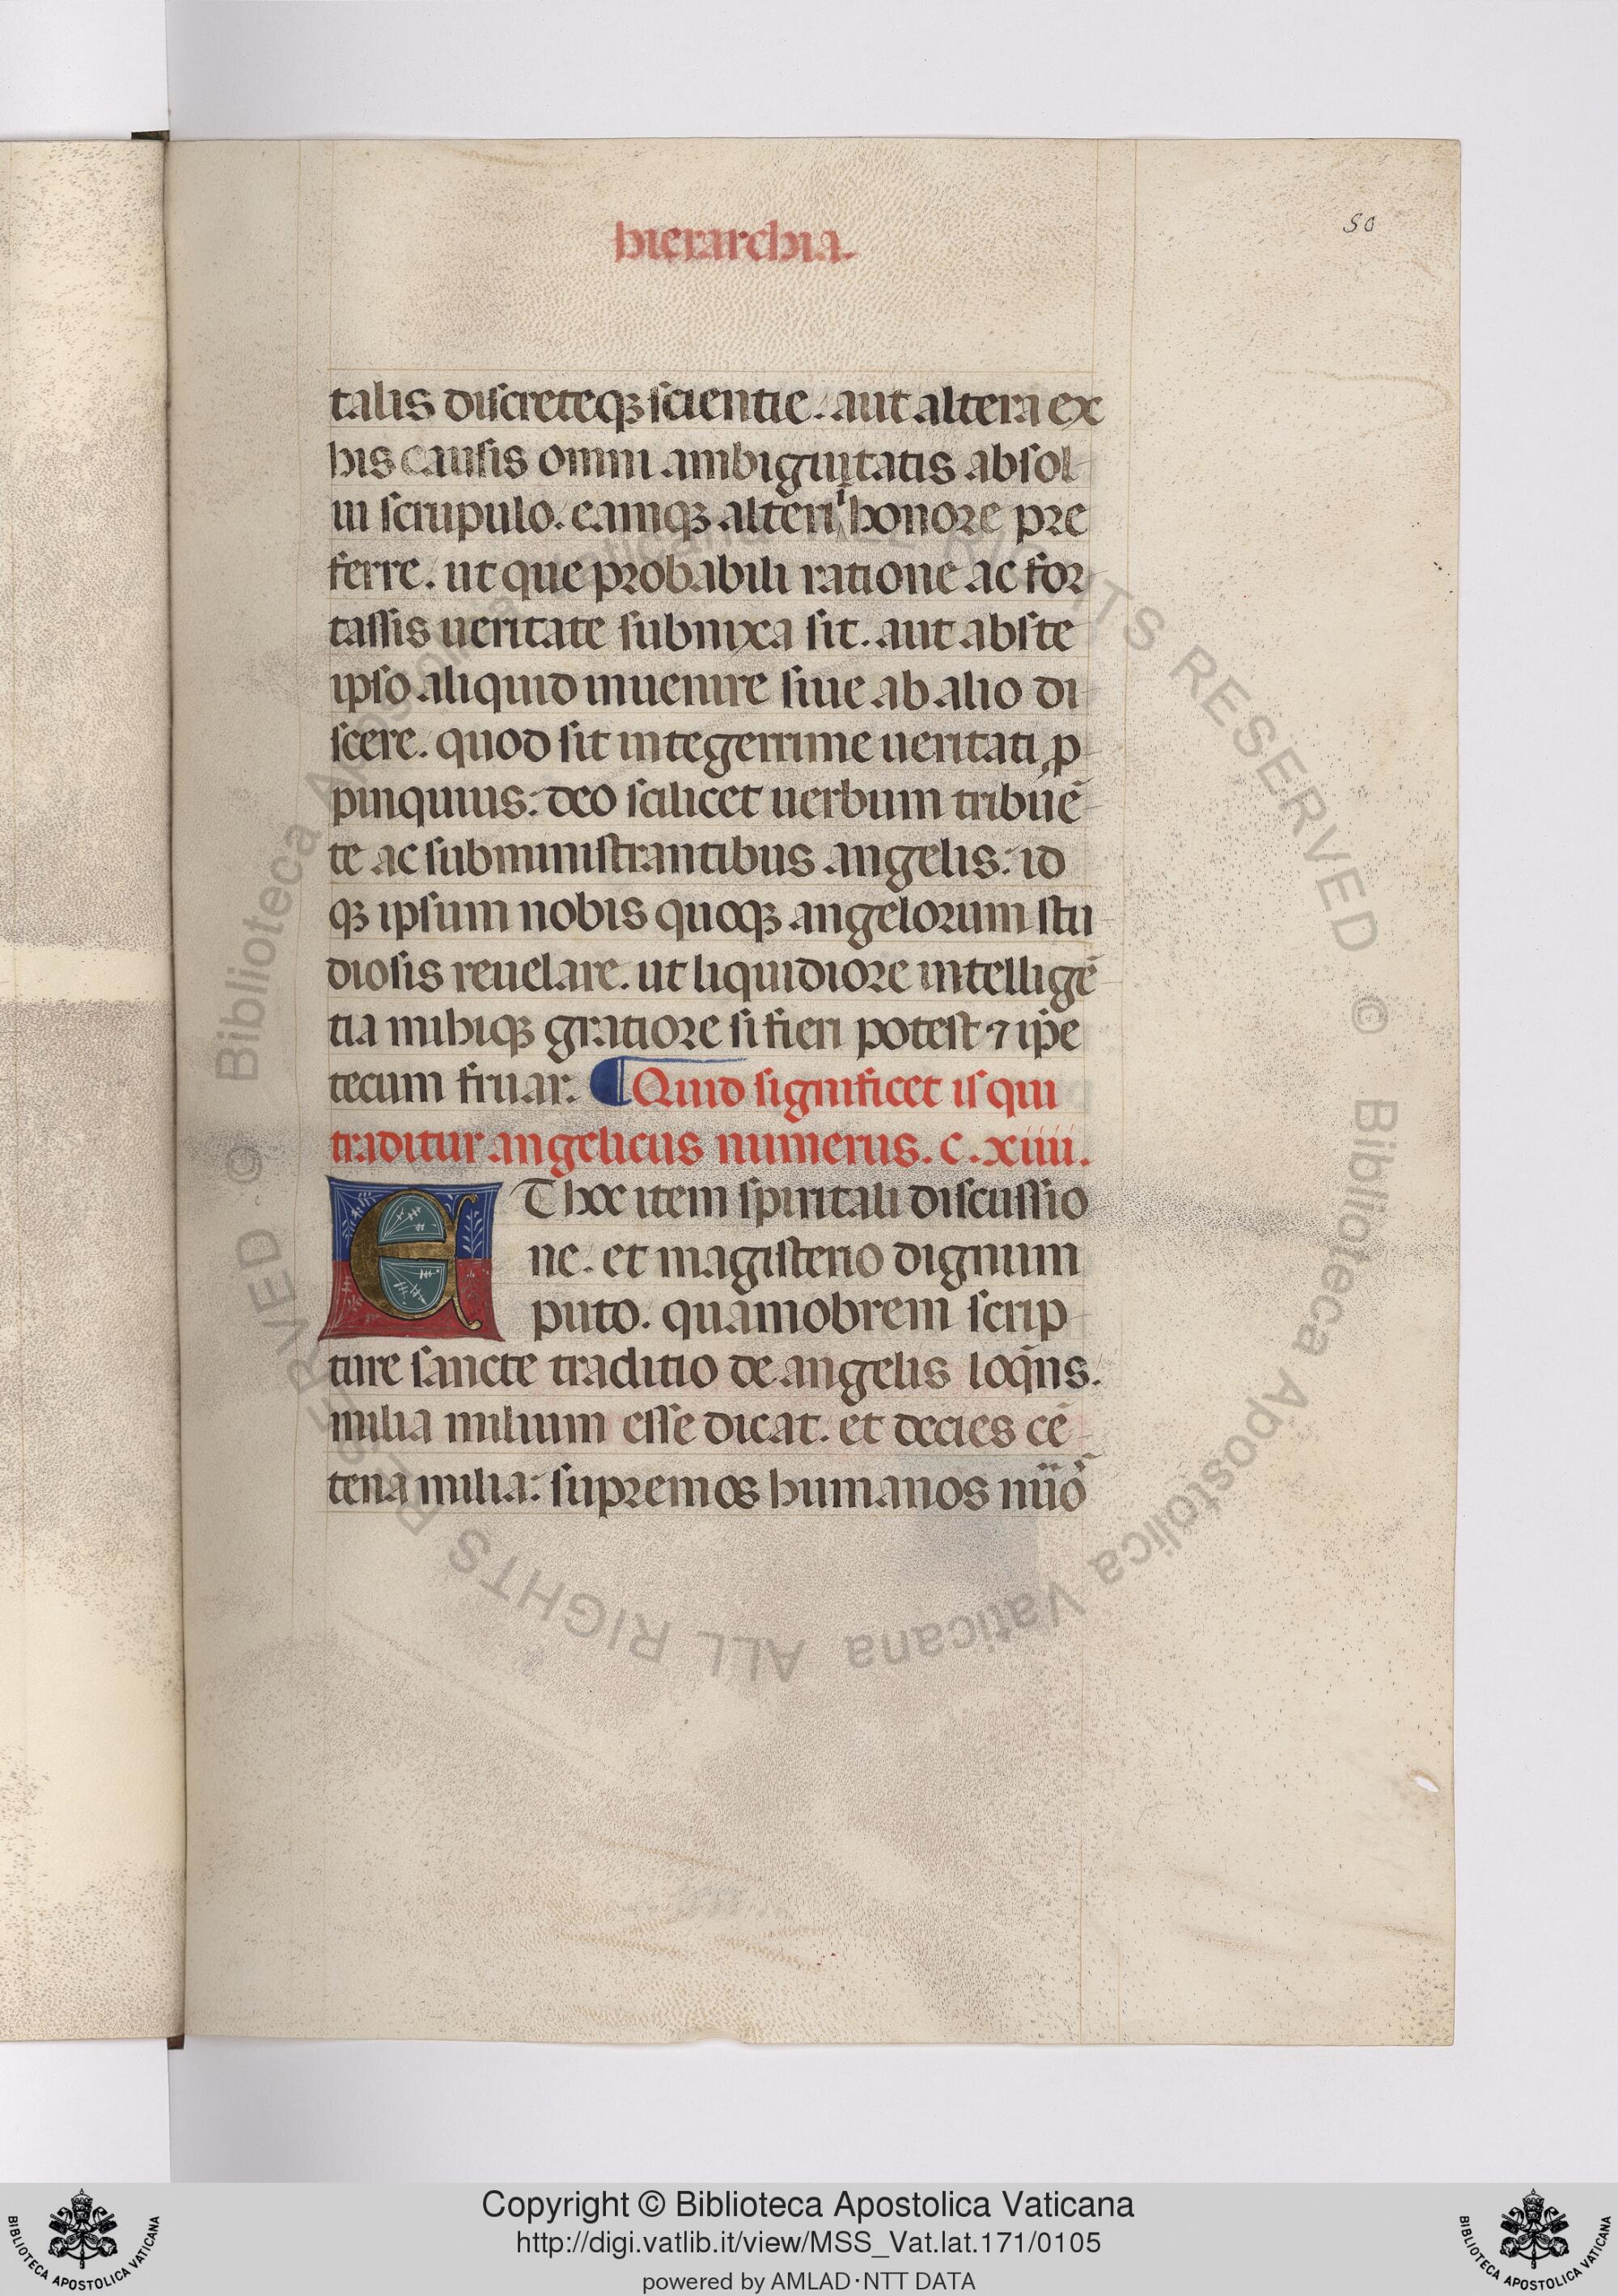 hierarchia.
50
talis discreteqꝫ scientie. aut altera ex
his causis omni ambiguitatis absol
ui scrupulo. eamqꝫ alteri honore pre
ferre. ut que probabili ratione ac for
tassis ueritate subnixa sit. aut abste
ipso aliquid inuenire siue ab alio di
scere. quod sit integerrime ueritati ꝓ
pinquius: deo scilicet uerbum tribuē
te ac subministrantibus angelis: id
qꝫ ipsum nobis quoqꝫ angelorum stu
diosis reuelare. ut liquidiore intelligē
tia mihiqꝫ gratiore si fieri potest ⁊ ip̄e
tecum fruar. ¶ Quid significet is qui
traditur angelicus numerus. c. xiiii.
ET hoc item spiritali discussio
ne. et magisterio dignum
puto. quamobrem scrip
ture sancte traditio de angelis loqn̄s.
milia milium esse dicat. et decies cē
tena milia: supremos humanos
Copyright © Biblioteca Apostolica Vaticana
http://digi.vatlib.it/view/MSS_Vat.lat.171/0105
powered by AMLAD·NTT DATA
BIBLIOTECA APOSTOLICA VATICANA
BIBLIOTECA APOSTOLICA VATICANA